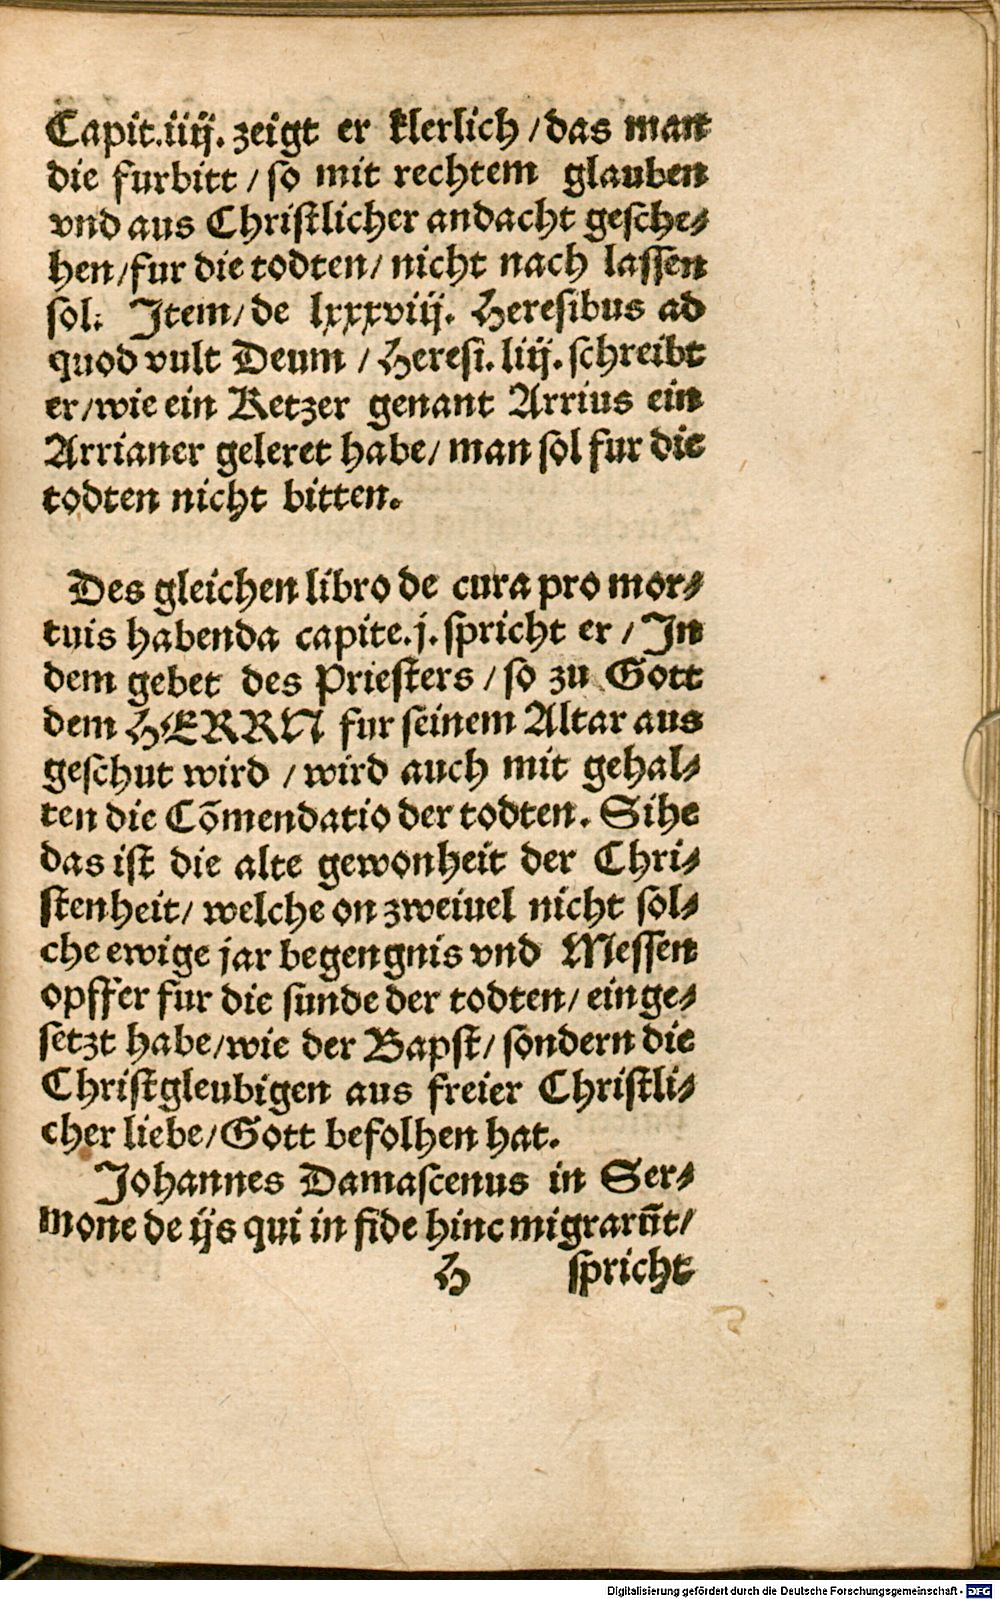 Capit.iiij. zeigt er klerlich / das man
die furbitt / so mit rechtem glauben
vnd aus Christlicher andacht gesche⸗
hen / fur die todten / nicht nach lassen
sol. Item / de lxxxviij. Heresibus ad
quod vult Deum / Heresi. liij. schreibt
er / wie ein Ketzer genant Arrius ein
Arrianer geleret habe / man sol fur die
todten nicht bitten.
Des gleichen libro de cura pro mor⸗
tuis habenda capite.j. spricht er / In
dem gebet des Priesters / so zu Gott
dem HERRN fur seinem Altar aus
geschut wird / wird auch mit gehal⸗
ten die Cōmendatio der todten. Sihe
das ist die alte gewonheit der Chri⸗
stenheit / welche on zweiuel nicht sol⸗
che ewige jar begengnis vnd Messen
opffer fur die sunde der todten / einge⸗
setzt habe / wie der Bapst / sondern die
Christgleubigen aus freier Christli⸗
cher liebe / Gott befolhen hat.
Johannes Damascenus in Ser⸗
mone de ijs qui in fide hinc migrarūt /
H spricht
Digitalisierung gefördert durch die Deutsche Forschungsgemeinschaft - DFG